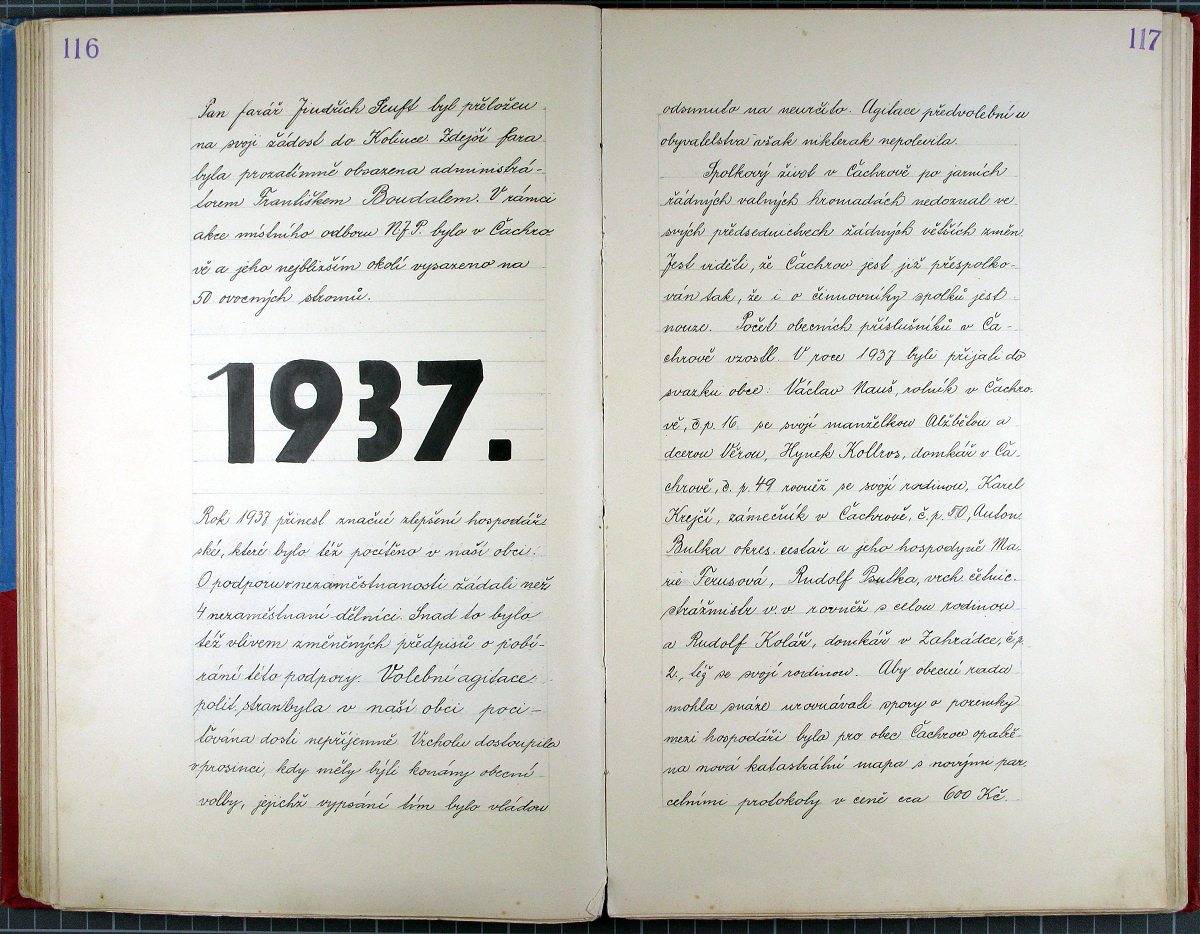 116
Pan farář Jindřich Seuft byl přeložen
na svoji žádost do Kolince. Zdejší fara
byla prozatímně obsazena administrá-
torem Františkem Boudalem. V rámci
akce místního odboru NJP. bylo v Čachro
vě a jeho nejbližším okolí vysazeno na
50 ovocných stromů.
1937.
Rok 1937 přinesl značné zlepšení hospodář
ské, které bylo též pocítěno v naší obci.
O podporu v nezaměstnanosti žádali než
4 nezaměstnaní dělníci. Snad to bylo
též vlivem změněných předpisů o pobí-
rání této podpory. Volební agitace
polit. stran byla v naší obci poci-
ťována dosti nepříjemně. Vrcholu dostoupila
v prosinci, kdy měly býti konány obecní
volby, jejichž vypsání tím bylo vládou
117
odsunuto na neurčito. Agitace předvolební u
obyvatelstva však nikterak nepolevila.
Spolkový život v Čachrově po jarních
řádných valných hromadách nedoznal ve
svých předsednictvech žádných větších změn.
Jest viděti, že Čachrov jest již přespolko-
ván tak, že i o činovníky spolků jest
nouze. Počet obecních příslušníků v Ča-
chrově vzostl. V roce 1937 byli přijati do
svazku obce: Václav Nauš, rolník v Čachro-
vě, č.p. 16. se svojí manželkou Alžbětou a
dcerou Věrou, Hynek Kollros, domkář v Ča-
chrově, č. p. 49 rovněž se svojí rodinou, Karel
Krejčí, zámečník v Čachrově, č. p. 50, Anton.
Bulka okres. cestař a jeho hospodyně Ma-
rie Terusová, Rudolf Psulka, vrch. četnic.
strážmistr v. v. rovněž s celou rodinou
a Rudolf Kolář, domkář v Zahrádce, č.p.
2., též se svojí rodinou. Aby obecní rada
mohla snáze urovnávati spory o pozemky
mezi hospodáři byla pro obec Čachrov opatře-
na nová katastrální mapa s novými par
celními protokoly v ceně cca 600 Kč.